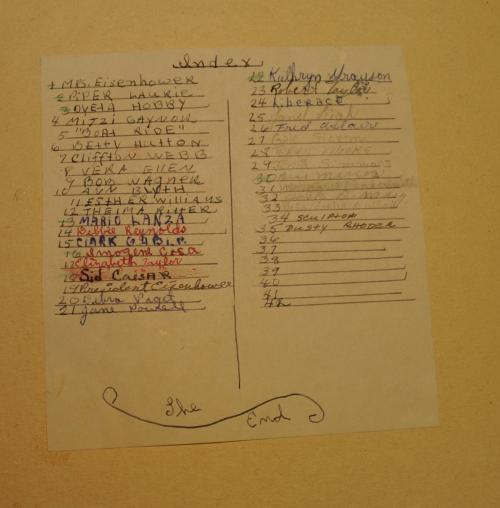 Index
1 MRS. Eisenhower
2 PIPER LAURIE
3 OVETA HOBBY
4 MITZI GAYNOR
5 "BOAT RIDE"
6 BETTY HUTTON
7 Cliffton WEBB
8 VERA ELLEN
9 BOB WAGNER
10 ANN BLYTH
11 ESTHER WILLIAMS
12 THELMA RITTER
13 MARIO LANZA
14 Debbie Reynolds
15 CLARK GABLE
16 Imogene Coca
17 Elizabeth Taylor
18 Sid CAESAR
19 President Eisenhower
20 Debra Paget
21 Jane Powell
22 Kathryn Grayson
23 Robert Taylor
24 Liberace
25 Janet Leigh
26 Fred Astair
27
28
29 Simmons
30
31
32
33
34 SCULPTOR
35 DUSTY RHODES
36
37
38
39
40
41
42
The End